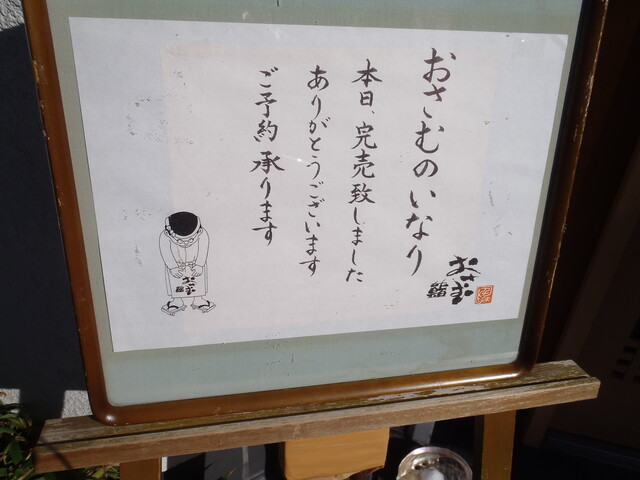 おさむのいなり
本日、完売致しました
ありがとうございます
ご予約承ります
おさむ
鮨